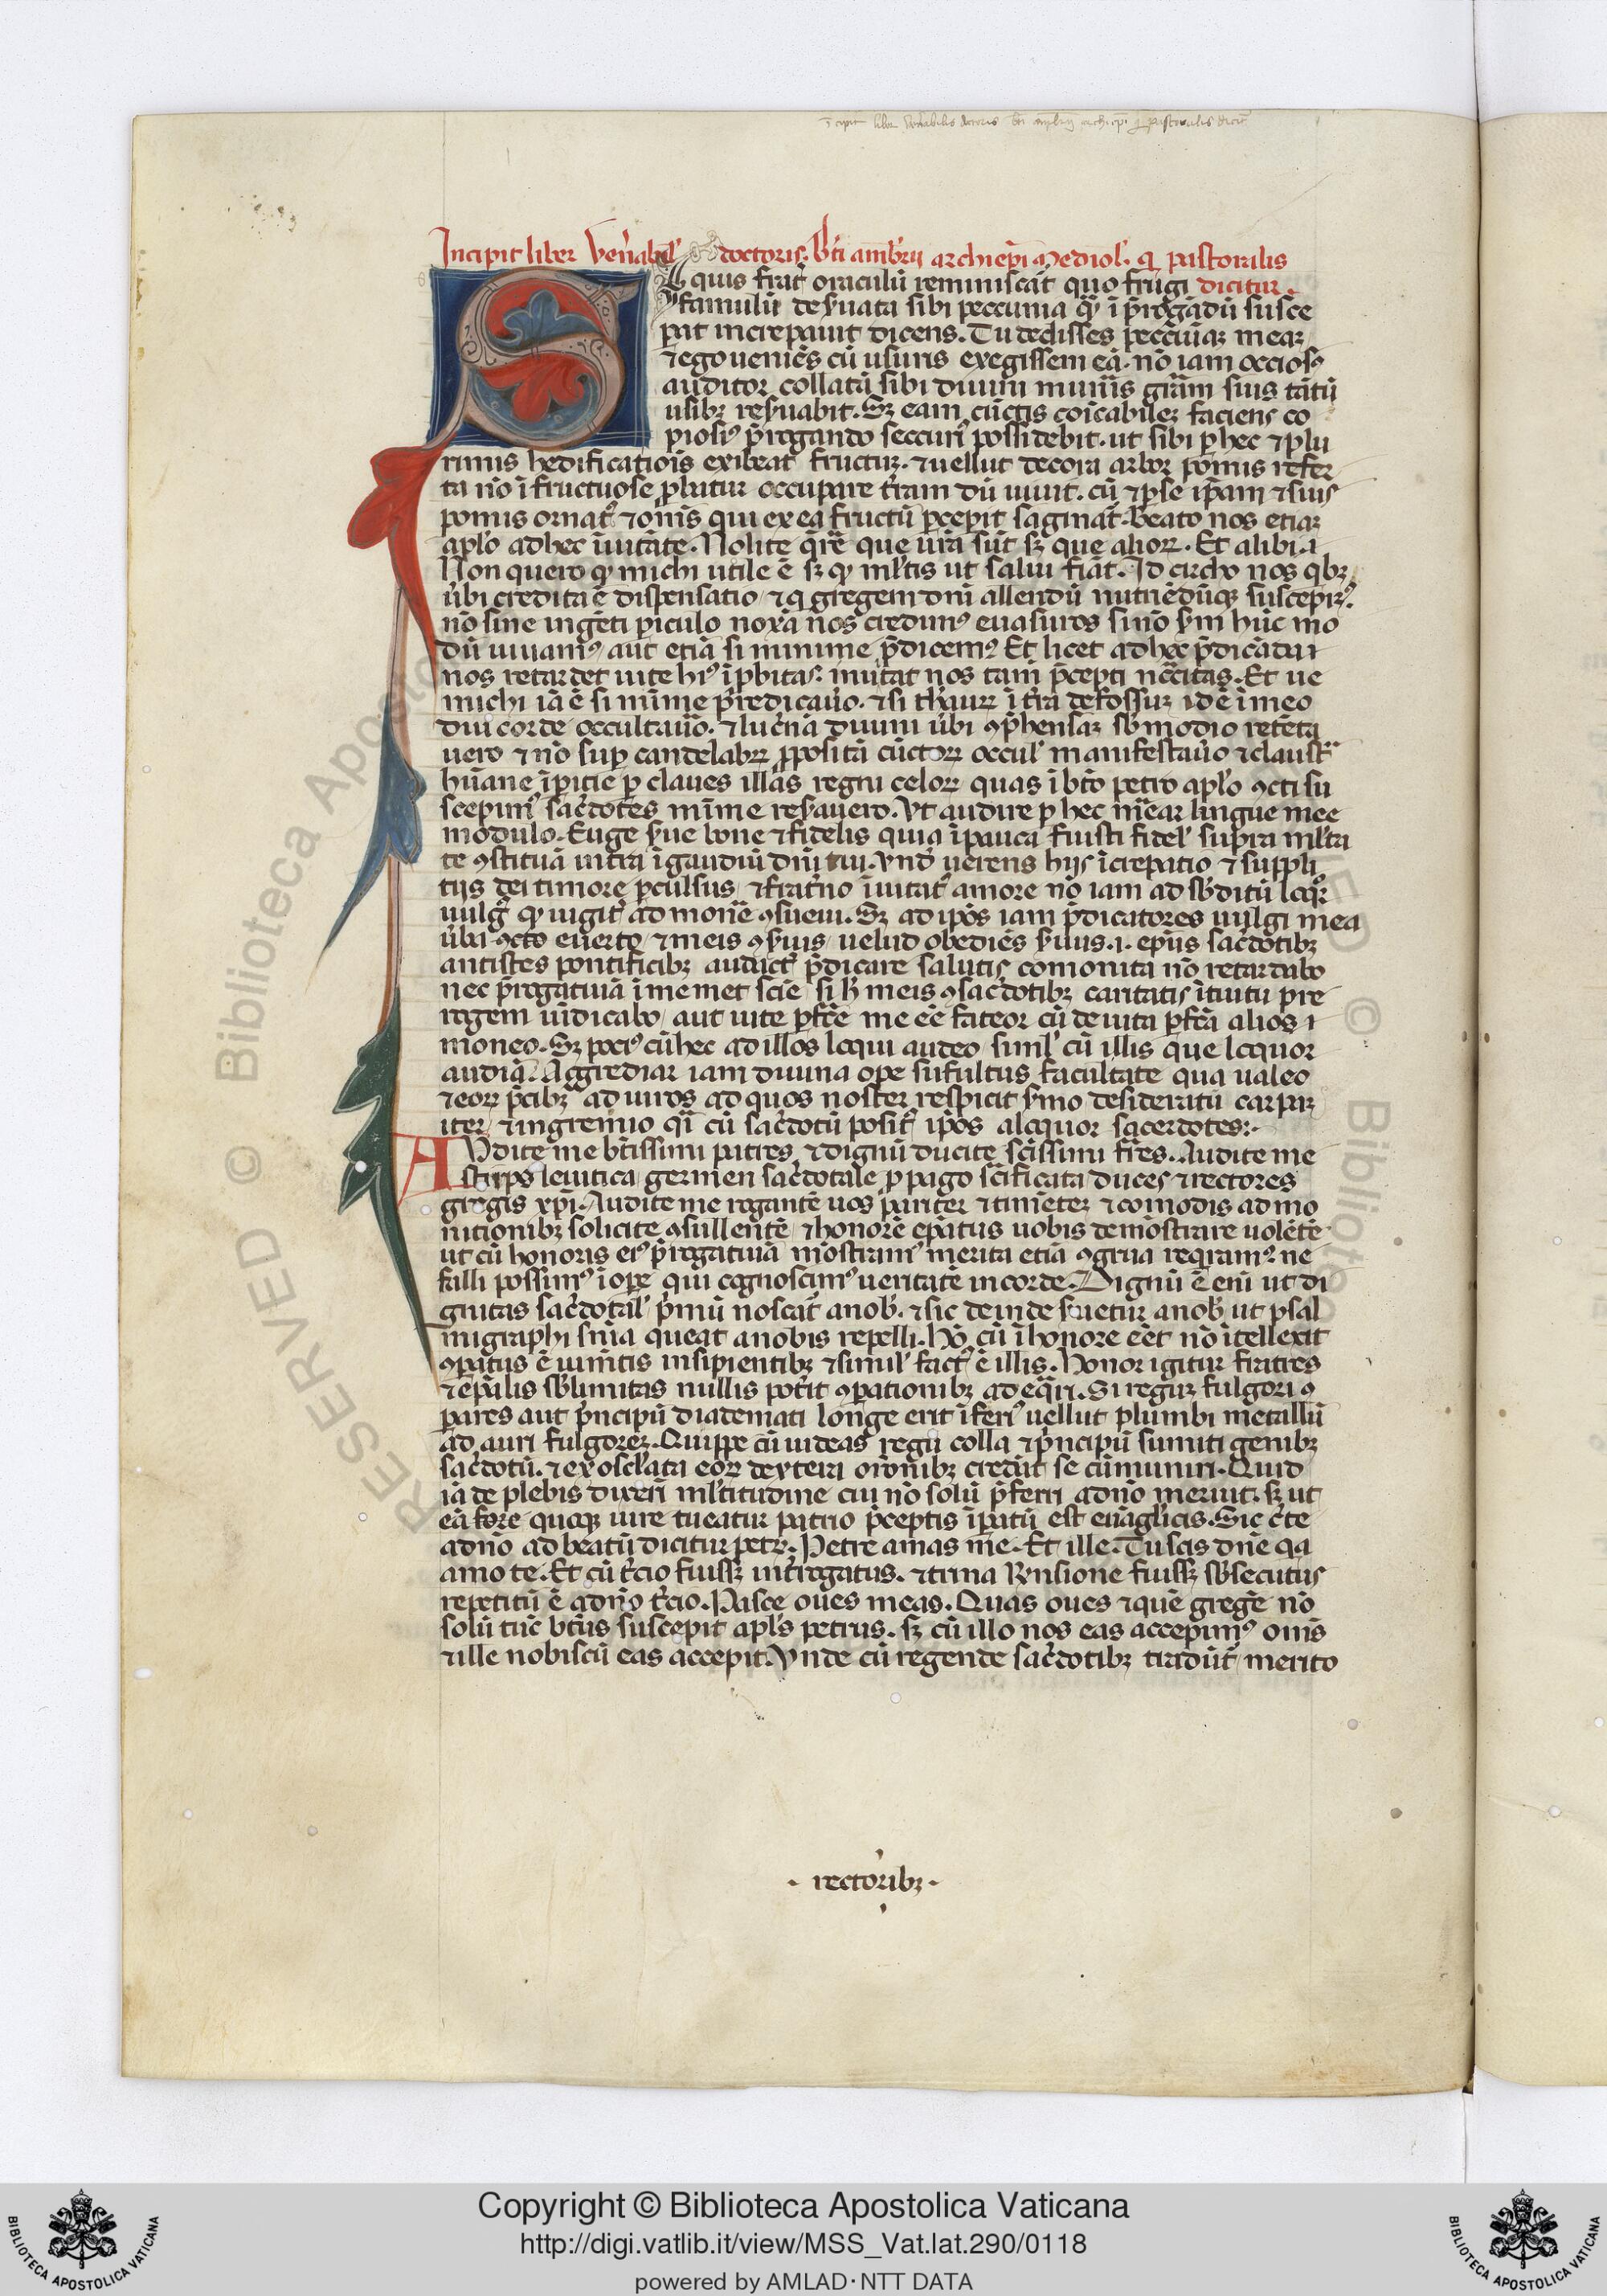 Incipit liber venerabilis doctoris bti ambrosii archiepi qi pastoralis dicit
Incipit liber Ven̄abil̄ doctoris. Bt̄i ambr̄ii archiep̄i Mediol̄. q̄ pastoralis
Siquis frat̄ oraculū reminiscat̄ quo frugi dicitur.
famulū deẜuata sibi peccunia quā ī p̄rogādū susce
pat increpauit dicens. Tu dedisses peccūiaꝫ meaꝫ
⁊ ego ueniēs cū usuris exegissem eā. nō iam occiosꝰ
auditor collatū sibi diuini mūis grām suis tātū
usibꝫ resuabit. Sꝫ eam cūctis coīcabileꝫ faciens co
piosiꝰ p̄rogando seccurꝰ possidebit. ut sibi ꝑ hec ⁊ plu
rimis hedificatiōis exibeat fructuꝫ. ⁊ uellut decora arbor pomis refer
ta nō ī fructuose ꝓbatur occupare t̄ram dū uiuit. cū ⁊ ꝑse ip̄am ⁊ suis
pomis ornat̄ ⁊ on̄is qui ex ea fructū ꝑcepit saginat̄. beato nos etiaꝫ
aplo adhec īuitāte. Nolite q̄re̅ que ur̄a sūt sꝫ que alioꝝ. Et alibi. ī
Non quero ꝙ michi utile ē sꝫ ꝙ ml̄tis ut salui fiāt. Id circho nos qbꝫ
ūbi credita ē dispensatio ⁊ q̄ gregem dn̄i allendū nutriēdūqꝫ suscepimꝰ.
nō sine ingēti ꝑiculo noxā nos credimꝰ euasuros sinō ẜm hūc mo
dū uiuamꝰ aut etiā si minime p̄dicemꝰ. Et licet adhec p̄dicādū ī
nos retardet uite hiꝰ īꝓbitas. inuitat nos tam p̄cepti necc̄itas. Et ue
michi iā ē si mīme predicauo. ⁊ si thauꝝ ī tr̄a defossuꝫ idē ī meo
diu corde occultauo. ⁊ luc̄nā diuini ūbi ꝯp̄hensaꝫ sb̄ modio retēta
uero ⁊ nō suꝑ candelabꝝ ꝓpositā cūctoꝝ occul̄ manifestauo ⁊ claustͣ
hūane īꝑicie ꝑ claues illas regni celoꝝ quas ī bt̄o petro aplo ꝯcti su
scepimꝰ sac̄dotes mīme reẜauero. Vt audire ꝑ hec mēear lingue mee
modulo. Euge ẜue bone ⁊ fidelis quia ī pauca fuisti fidel̄ supra ml̄ta
te ꝯstituā intra ī gaudiū dn̄i tui. Vnd̄ uerens hijs īcrepatio ⁊ suppli
tijs dei timore ꝑculsus ⁊ frat̄no īuitat̄ amore nō iam ad sb̄ditū loqͬ
uulgꝰ ꝙ uigit̄ ad monē ꝯsueui. Sꝫ ad ip̄os iam p̄dicatores uulgi mea
ūba ꝯcto euerto ⁊ meis ꝯẜuis uelud obediēs ẜuus. ī. ep̄us sac̄dotibꝫ
antistes pontificibꝫ auduct̄ p̄dicare salutis comonita nō retardabo
nec p̄rogatiuā ī me met scīe si ƀ meis ꝯsac̄dotibꝫ caritatis ītuitu pre
rogem uīdicabo aut uite ꝑfc̄e me ee̅ fateor cū de uita ꝑfc̄a alios ī
moneo. Sꝫ pociꝰ cū hec ad illos loqui audeo simil̄ cū illis que loquor
audiā. Aggrediar iam diuina ope sufultus facultate qua ualeo
⁊ eoꝝ p̄cibꝫ ad uiros ad quos noster respicit ẜmo desideratū carpar
iter ⁊ in gremio qͣi cū sac̄dotū posit̄ ip̄os aloquor sacerdotes:.
AVdite me bt̄issimi patres ⁊ dignū ducite sc̄issimi fr̄es. Audite me
stirps leuitica germen sac̄dotale ꝓpago sc̄ificata duces ⁊ rectores
gregis xp̄i. Audite me rogantē uos pariter ⁊ timēteꝫ ⁊ comodis admo
nitionibꝫ solicite ꝯsullentē ⁊ honorē ep̄atus uobis demōstrare uolētē
ut cū honoris eiꝰ p̄rogatiuā mōstramꝰ merita etiā ꝯgrua reqramꝰ. ne
falli possimꝰ ī ope qui cognoscimꝰ ueritatē in corde. Dignū ē enī ut di
gnitas sac̄dotal̄ p̄mū noscat̄ a nob̄. ⁊ sic deinde suetur a nob̄ ut psal
migraphi sn̄ia queat a nobis repelli. Hō cū ī honore eet̄ nō ītellexit
ꝯꝑatus ē iumētis insipientibꝫ ⁊ simil̄ factꝰ ē illis. Honor igitur fratres
⁊ ep̄alis sb̄limitas nullis pot̄it ꝯꝑationibꝫ adeq̄ri. Si reguꝫ fulgori ꝯ
pares aut p̄ncipū diademati longe erit īferiꝰ uellut plumbi metallū
ad auri fulgoreꝫ. Quippe cū uideas regū colla ⁊ p̄ncipū sumiti genibꝫ
sac̄dotū. ⁊ exosclata eoꝝ dextera or̄onibꝫ credāt se cūmuniri. Quid
iā de plebis dixeri ml̄titudine cui nō solū p̄ferri a dn̄o meruit. sꝫ ut
eā fore quoqꝫ iure tueatur patrio p̄ceptis īꝑatū est euāglicis. Sic c̄te
a dn̄o ad beatū dicitur petꝝ. Petre amas me. Et ille. Tu scis dn̄e qa
amo te. Et cū t̄cio fuissꝫ int̄rogatus. ⁊ trina Rn̄sione fuissꝫ sb̄secutus
repetitū ē a dn̄o t̄cio. Pasce oues meas. Quas oues ⁊ quē gregē nō
solū tūc bt̄us suscepit apls petrus. sꝫ cū illo nos eas accepimꝰ om̄s
⁊ ille nobiscū eas accepit. Vnde cū regende sac̄dotibꝫ tradūt̄ merito
. rectoribꝫ .
© Biblioteca Apostolica
RESERVED
Copyright © Biblioteca Apostolica Vaticana
http://digi.vatlib.it/view/MSS_Vat.lat.290/0118
powered by AMLAD·NTT DATA
BIBLIOTECA APOSTOLICA VATICANA
BIBLIOTECA APOSTOLICA VATICANA